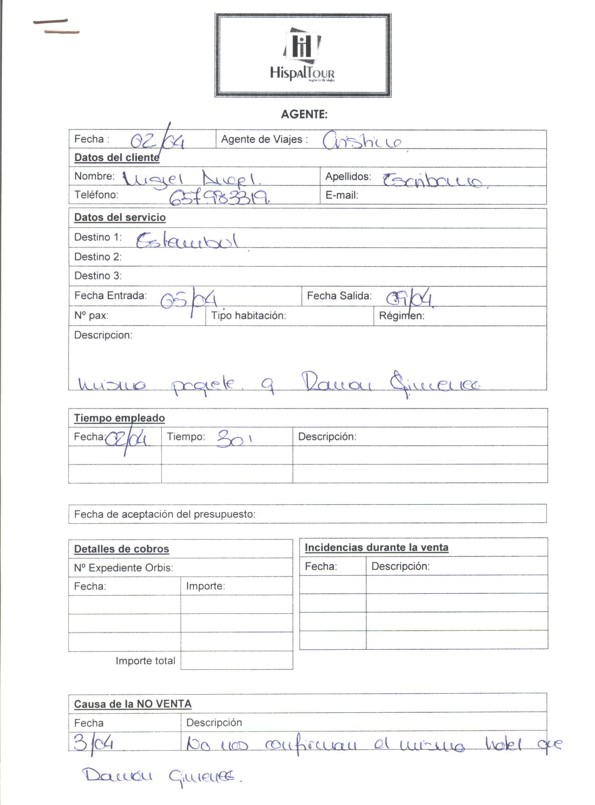 HiT
HISPALTOUR
AGENTE:
Fecha : 02/04 Agente de Viajes : Cristina
Datos del cliente
Nombre: Miguel Angel. Apellidos: Escribano.
Teléfono: 657983319. E-mail:
Datos del servicio
Destino 1: Estambul
Destino 2:
Destino 3:
Fecha Entrada: 05/04 Fecha Salida: 09/04
Nº pax: Tipo habitación: Régimen:
Descripcion:
mismo paqete q Damon Gimenez
Tiempo empleado
Fecha: 02/04 Tiempo: 30' Descripción:
Fecha de aceptación del presupuesto:
Detalles de cobros
Nº Expediente Orbis:
Fecha: Importe:
Importe total
Incidencias durante la venta
Fecha: Descripción:
Causa de la NO VENTA
Fecha Descripción
3/04 No nos confirman el mismo hotel que
Damon Gimenez.